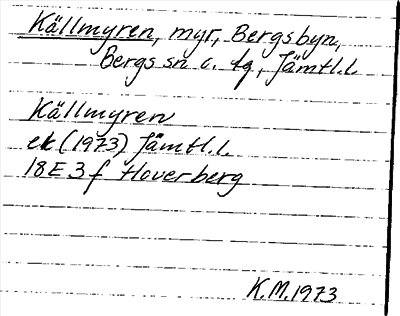 Källmyren, myr, Bergsbyn,
Bergs sn o. tg, Jämtl.l.
Källmyren
ek (1973) Jämtl.l.
18E 3f Hoverberg
K.M.1973